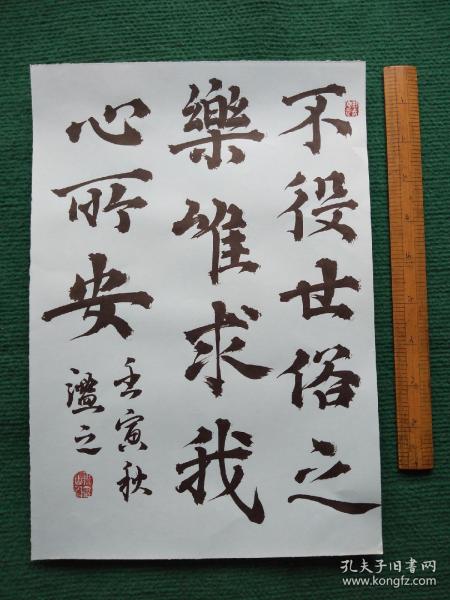 不役世俗之
樂唯求我
心所安
壬寅秋
溋之
孔夫子旧书网
www.kongfz.com